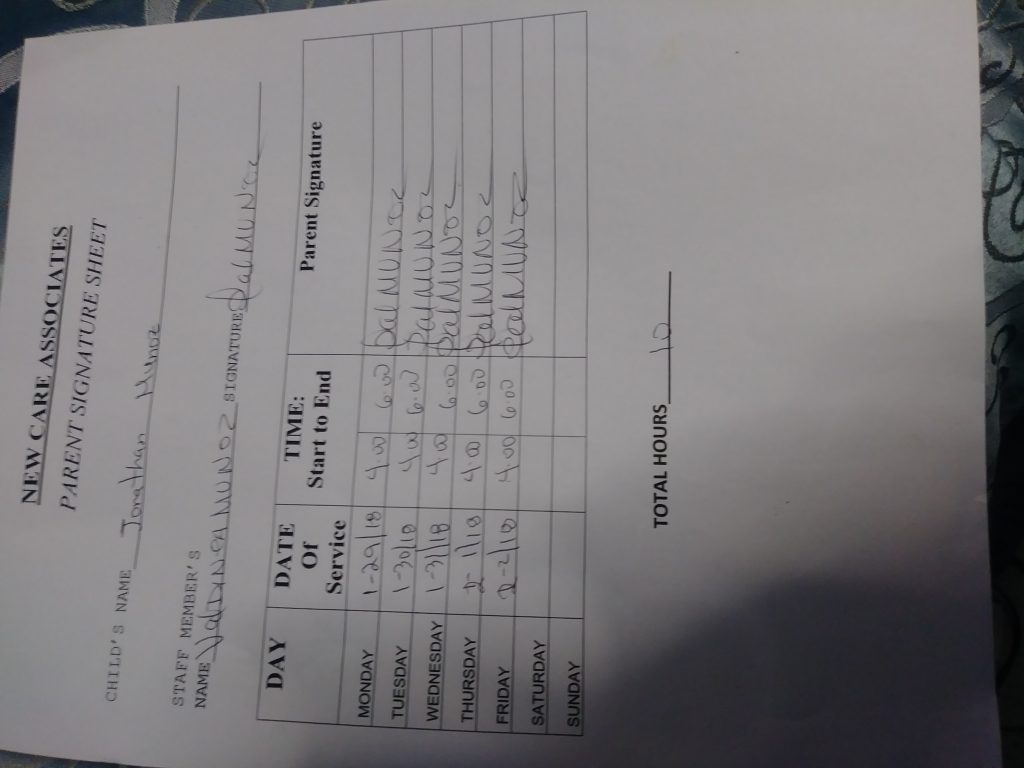 NEW CARE ASSOCIATES
PARENT SIGNATURE SHEET
CHILD'S NAME Jonathan Munoz
STAFF MEMBER'S
NAME MUNOZ SIGNATURE MUNOZ
DAY DATE Of Service TIME: Start to End Parent Signature
MONDAY 1-29/18 4.00 6.00 MUNOZ
TUESDAY 1-30/18 4.00 6.00 MUNOZ
WEDNESDAY 1-31/18 4.00 6.00 MUNOZ
THURSDAY 2-1/18 4.00 6.00 MUNOZ
FRIDAY 2-2/18 4.00 6.00 MUNOZ
SATURDAY
SUNDAY
TOTAL HOURS 10